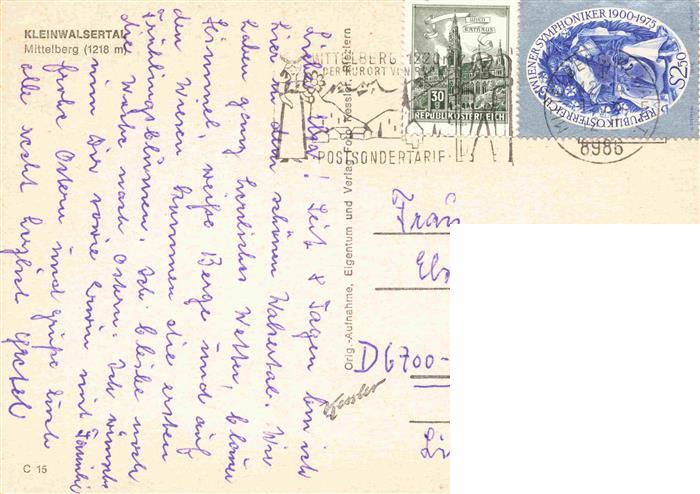 KLEINWALSERTAL
Mittelberg (1218 m)
Liebe Elsa! Seit 8 Tagen bin ich
hier in dem schönen Walsertal. Wir
haben ganz herrliches Wetter, blauer
Himmel, weiße Berge und auf
den Wiesen kommen die ersten
Frühlingsblumen. Ich bleibe noch
die Woche nach Ostern. Ich wünsche
nun Dir sowie Erwin mit Familie
frohe Ostern und grüße Euch
alle recht herzlich Gretel
C 15
MITTELBERG 1220 m
DER KURORT VON
POSTSONDERTARIF
WIEN
RATHAUS
30
REPUBLIK ÖSTERREICH
WIENER SYMPHONIKER 1900-1975
REPUBLIK ÖSTERREICH
S 2.50
8986
Orig.-Aufnahme, Eigentum und Verlag Foto Kessler, Riezlern
Kessler
Frau
Els
D6700-
Li